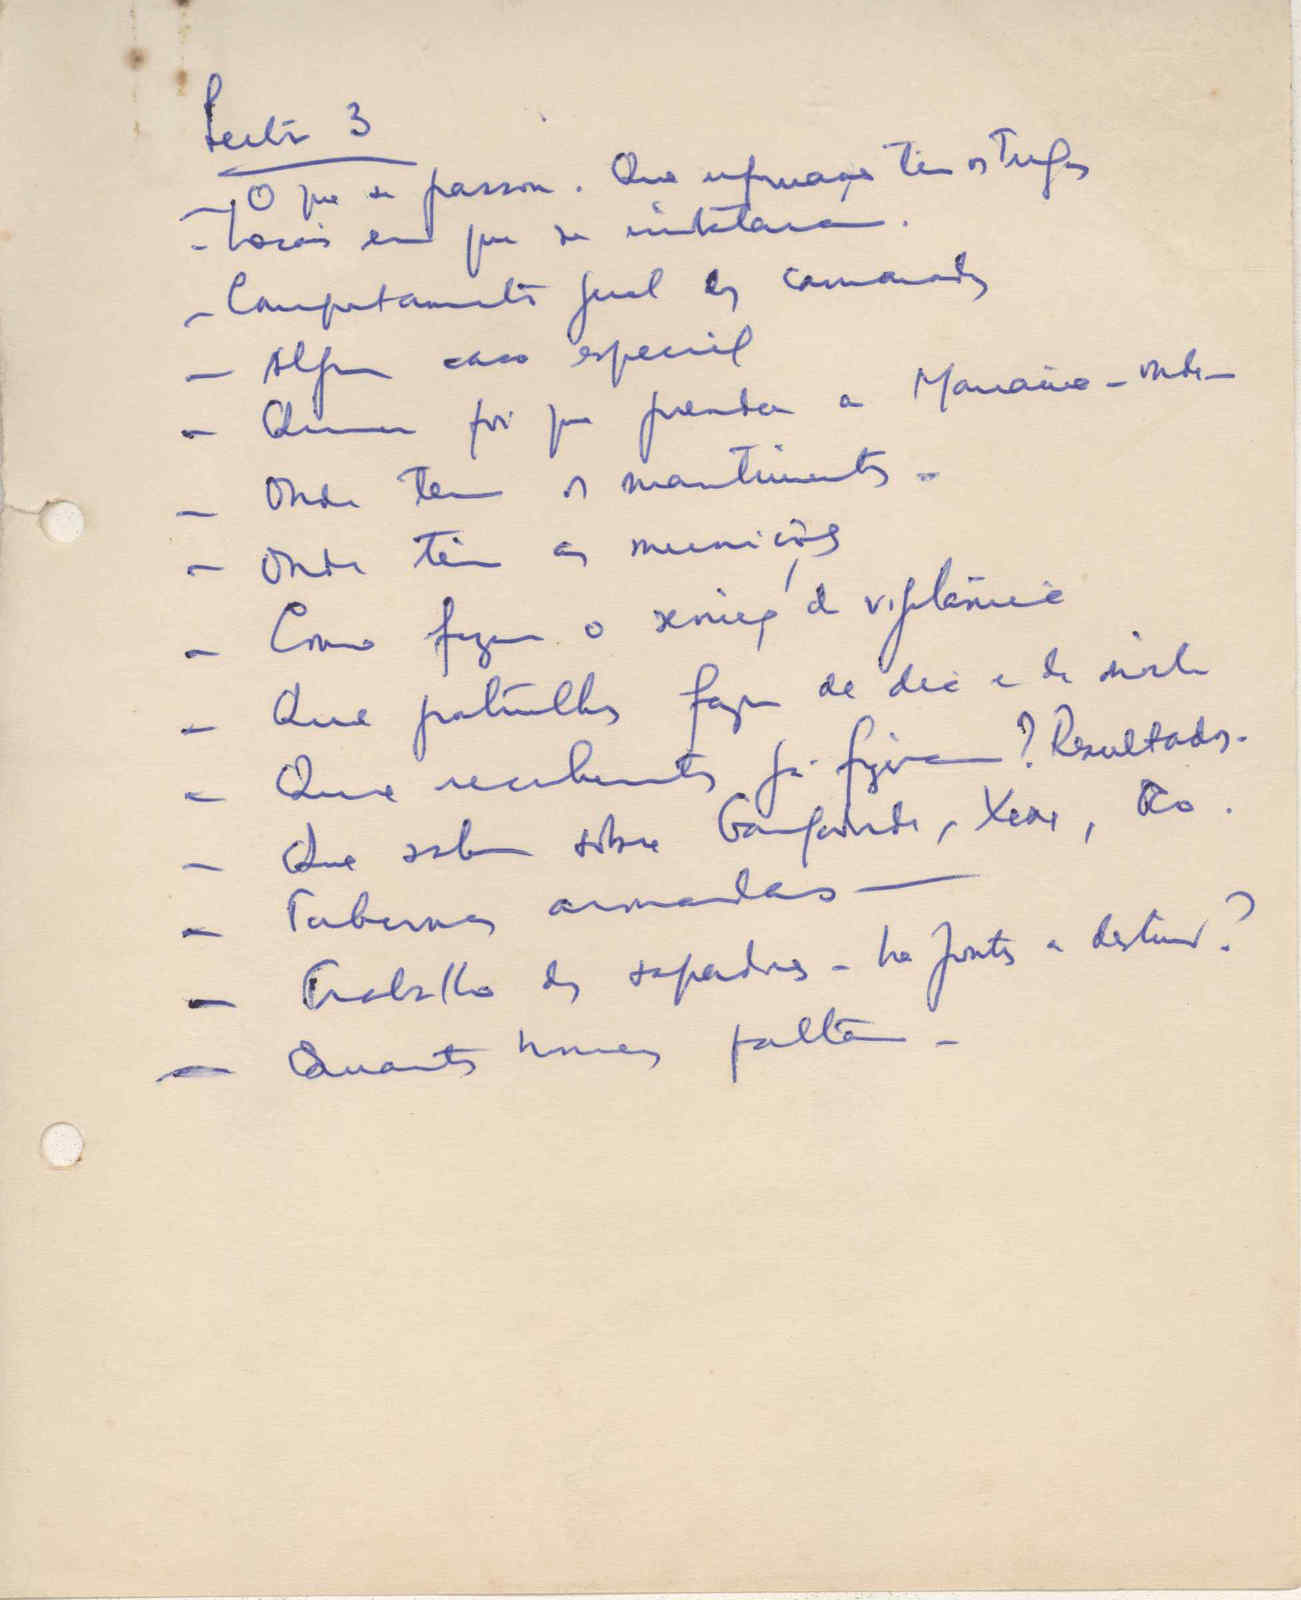 Sector 3
- O que se passou. Que informações têm os Tugas
- Locais em que se instalaram.
- Comportamento geral dos camaradas
- Algum caso especial
- Quem foi que prendeu a - onde -
- Onde têm os mantimentos -
- Onde têm as munições
- Como fazem o serviço de vigilância
- Que patrulhas fazem de dia e de noite
- Que recebimentos já fizeram? Resultados.
- Que sabem sobre , , .
- armadas -
- Trabalho dos sapadores - há pontes a destruir?
- Quantos homens faltam -